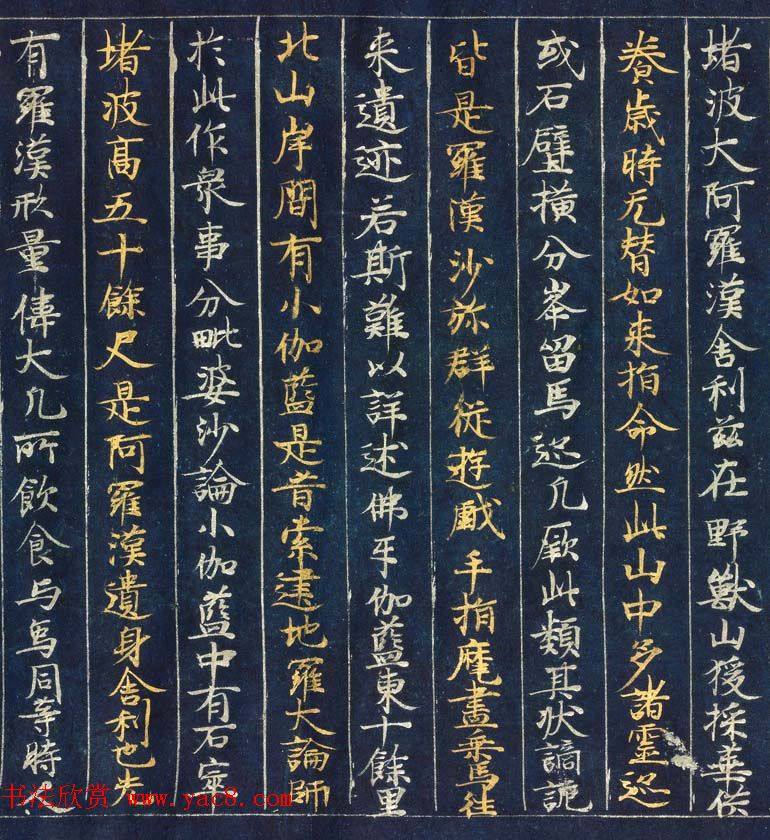 堵波大阿羅漢舍利茲在野獸山猨採華供
養歲時无替如来指命然此山中多諸靈迹
或石壁横分峯留馬迹凡厥此類其状譎詭
皆是羅漢沙弥群従遊戲手指麾畫乗馬往
来遺迹若斯難以詳述佛牙伽藍東十餘里
北山岸間有小伽藍是昔索建地羅大論師
於此作衆事分毗婆沙論小伽藍中有石窣
堵波高五十餘尺是阿羅漢遺身舍利也先
有羅漢形量偉大凡所飲食与烏同等時
书法欣赏 www.yac8.com